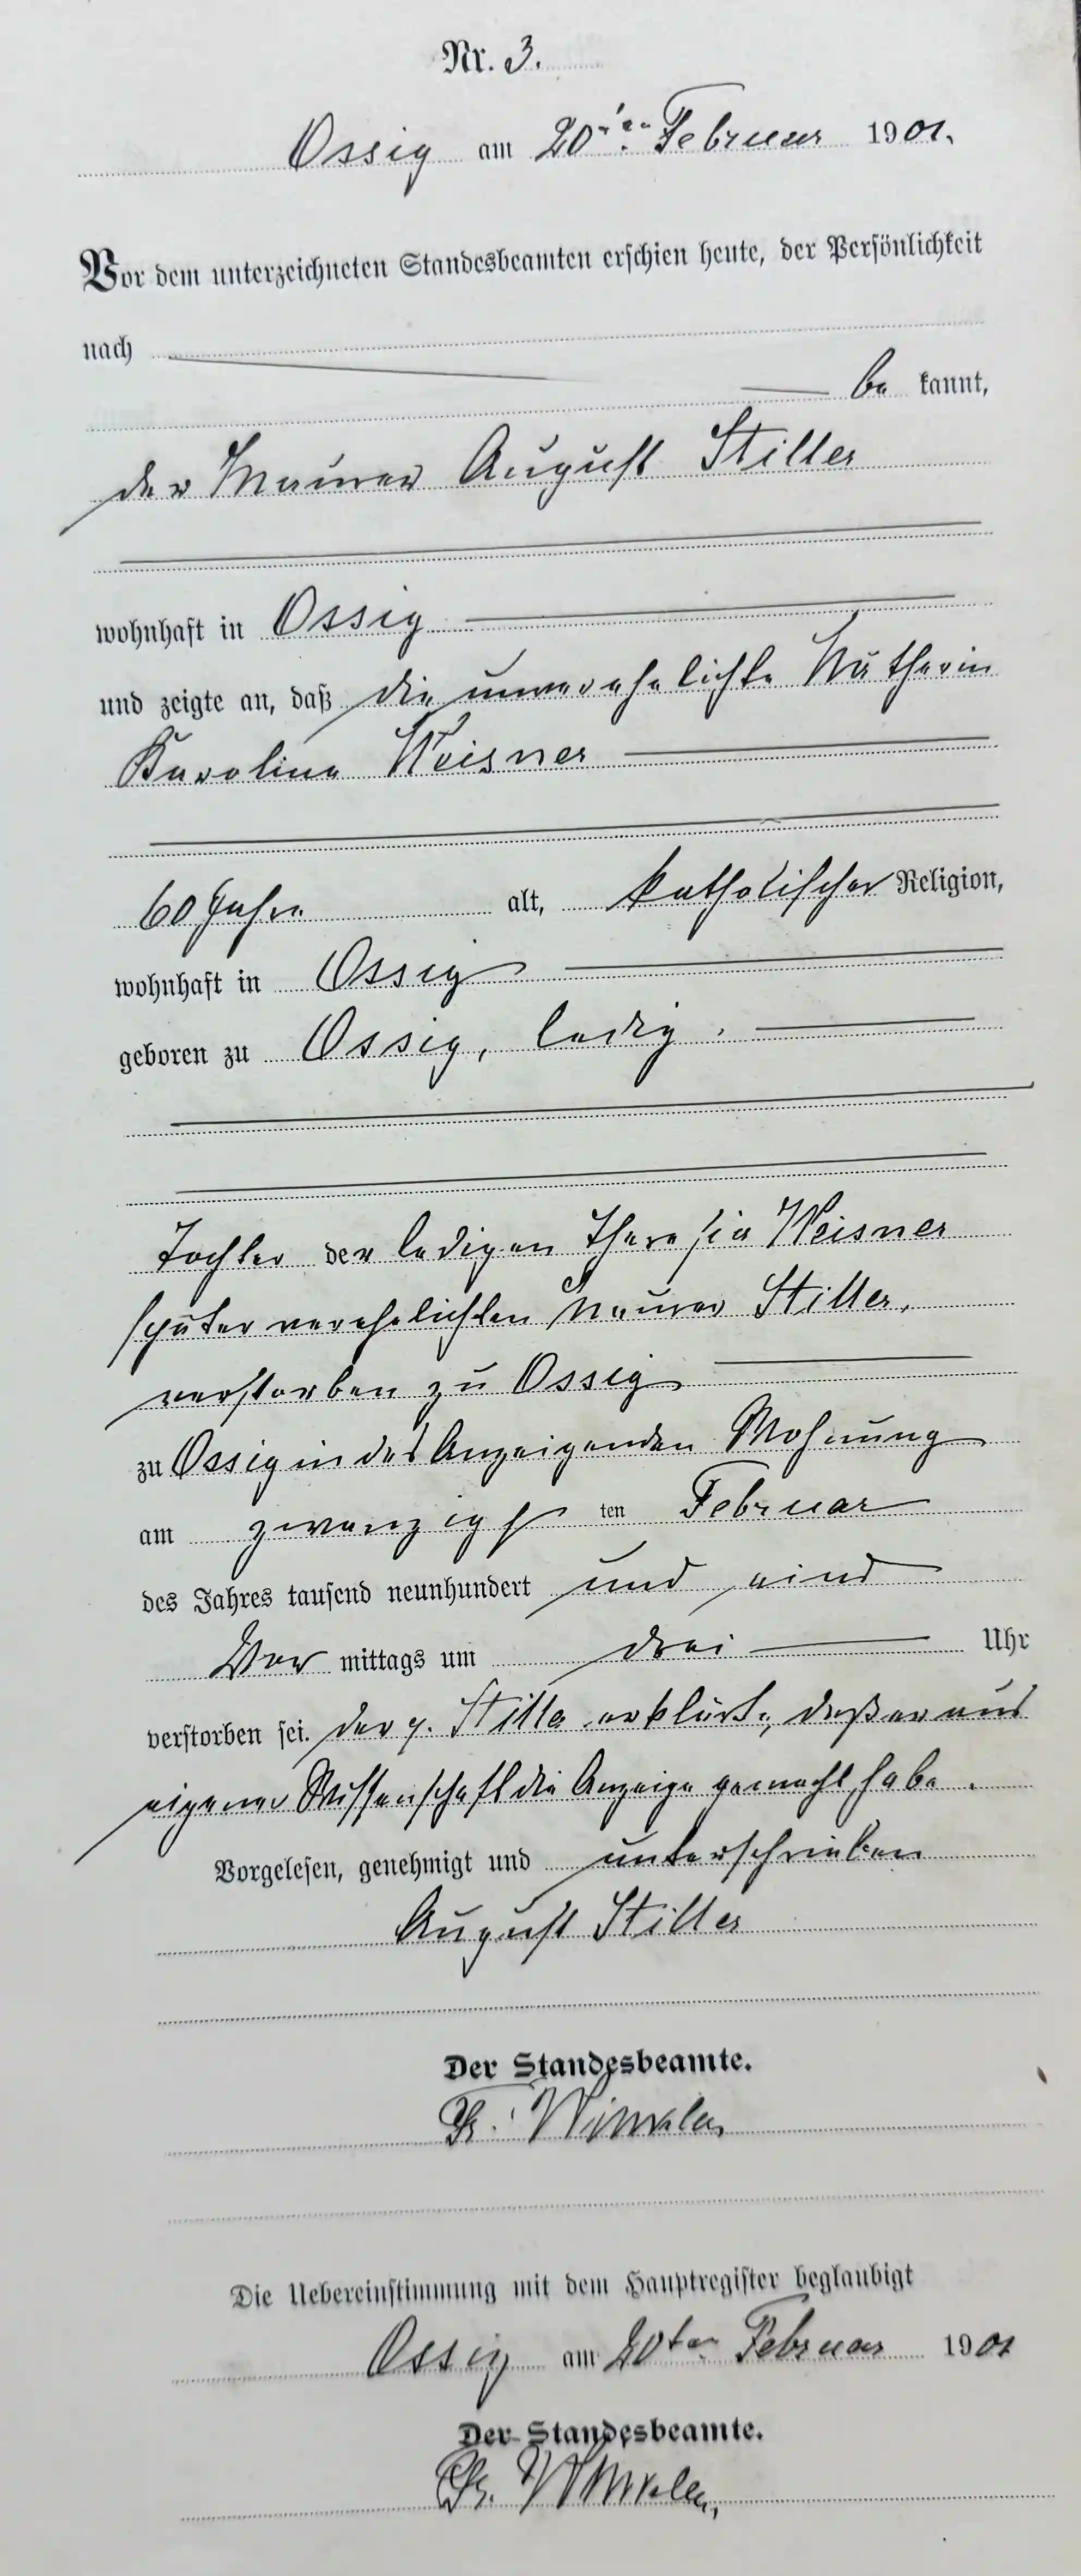 Nr. 3.
Ossig am 20ten Februar 1901.
Vor dem unterzeichneten Standesbeamten erschien heute, der Persönlichkeit
nach
be kannt,
der Maurer August Stiller
wohnhaft in Ossig
und zeigte an, daß die unverehelichte Nätherin
Karoline Weisner
60 Jahre alt, katholischer Religion,
wohnhaft in Ossig
geboren zu Ossig, ledig.
Tochter der ledigen Theresia Weisner
später verehelichten Maurer Stiller,
verstorben zu Ossig
zu Ossig in des Anzeigenden Wohnung
am zwanzigs ten Februar
des Jahres tausend neunhundert und eins
Vor mittags um drei Uhr
verstorben sei. der p. Stiller erklärt, daß er aus
eigener Wissenschaft die Anzeige gemacht habe.
Vorgelesen, genehmigt und unterschrieben
August Stiller
Der Standesbeamte.
Winkler
Die Uebereinstimmung mit dem Hauptregister beglaubigt
Ossig am 20ten Februar 1901
Der Standesbeamte.
Winkler